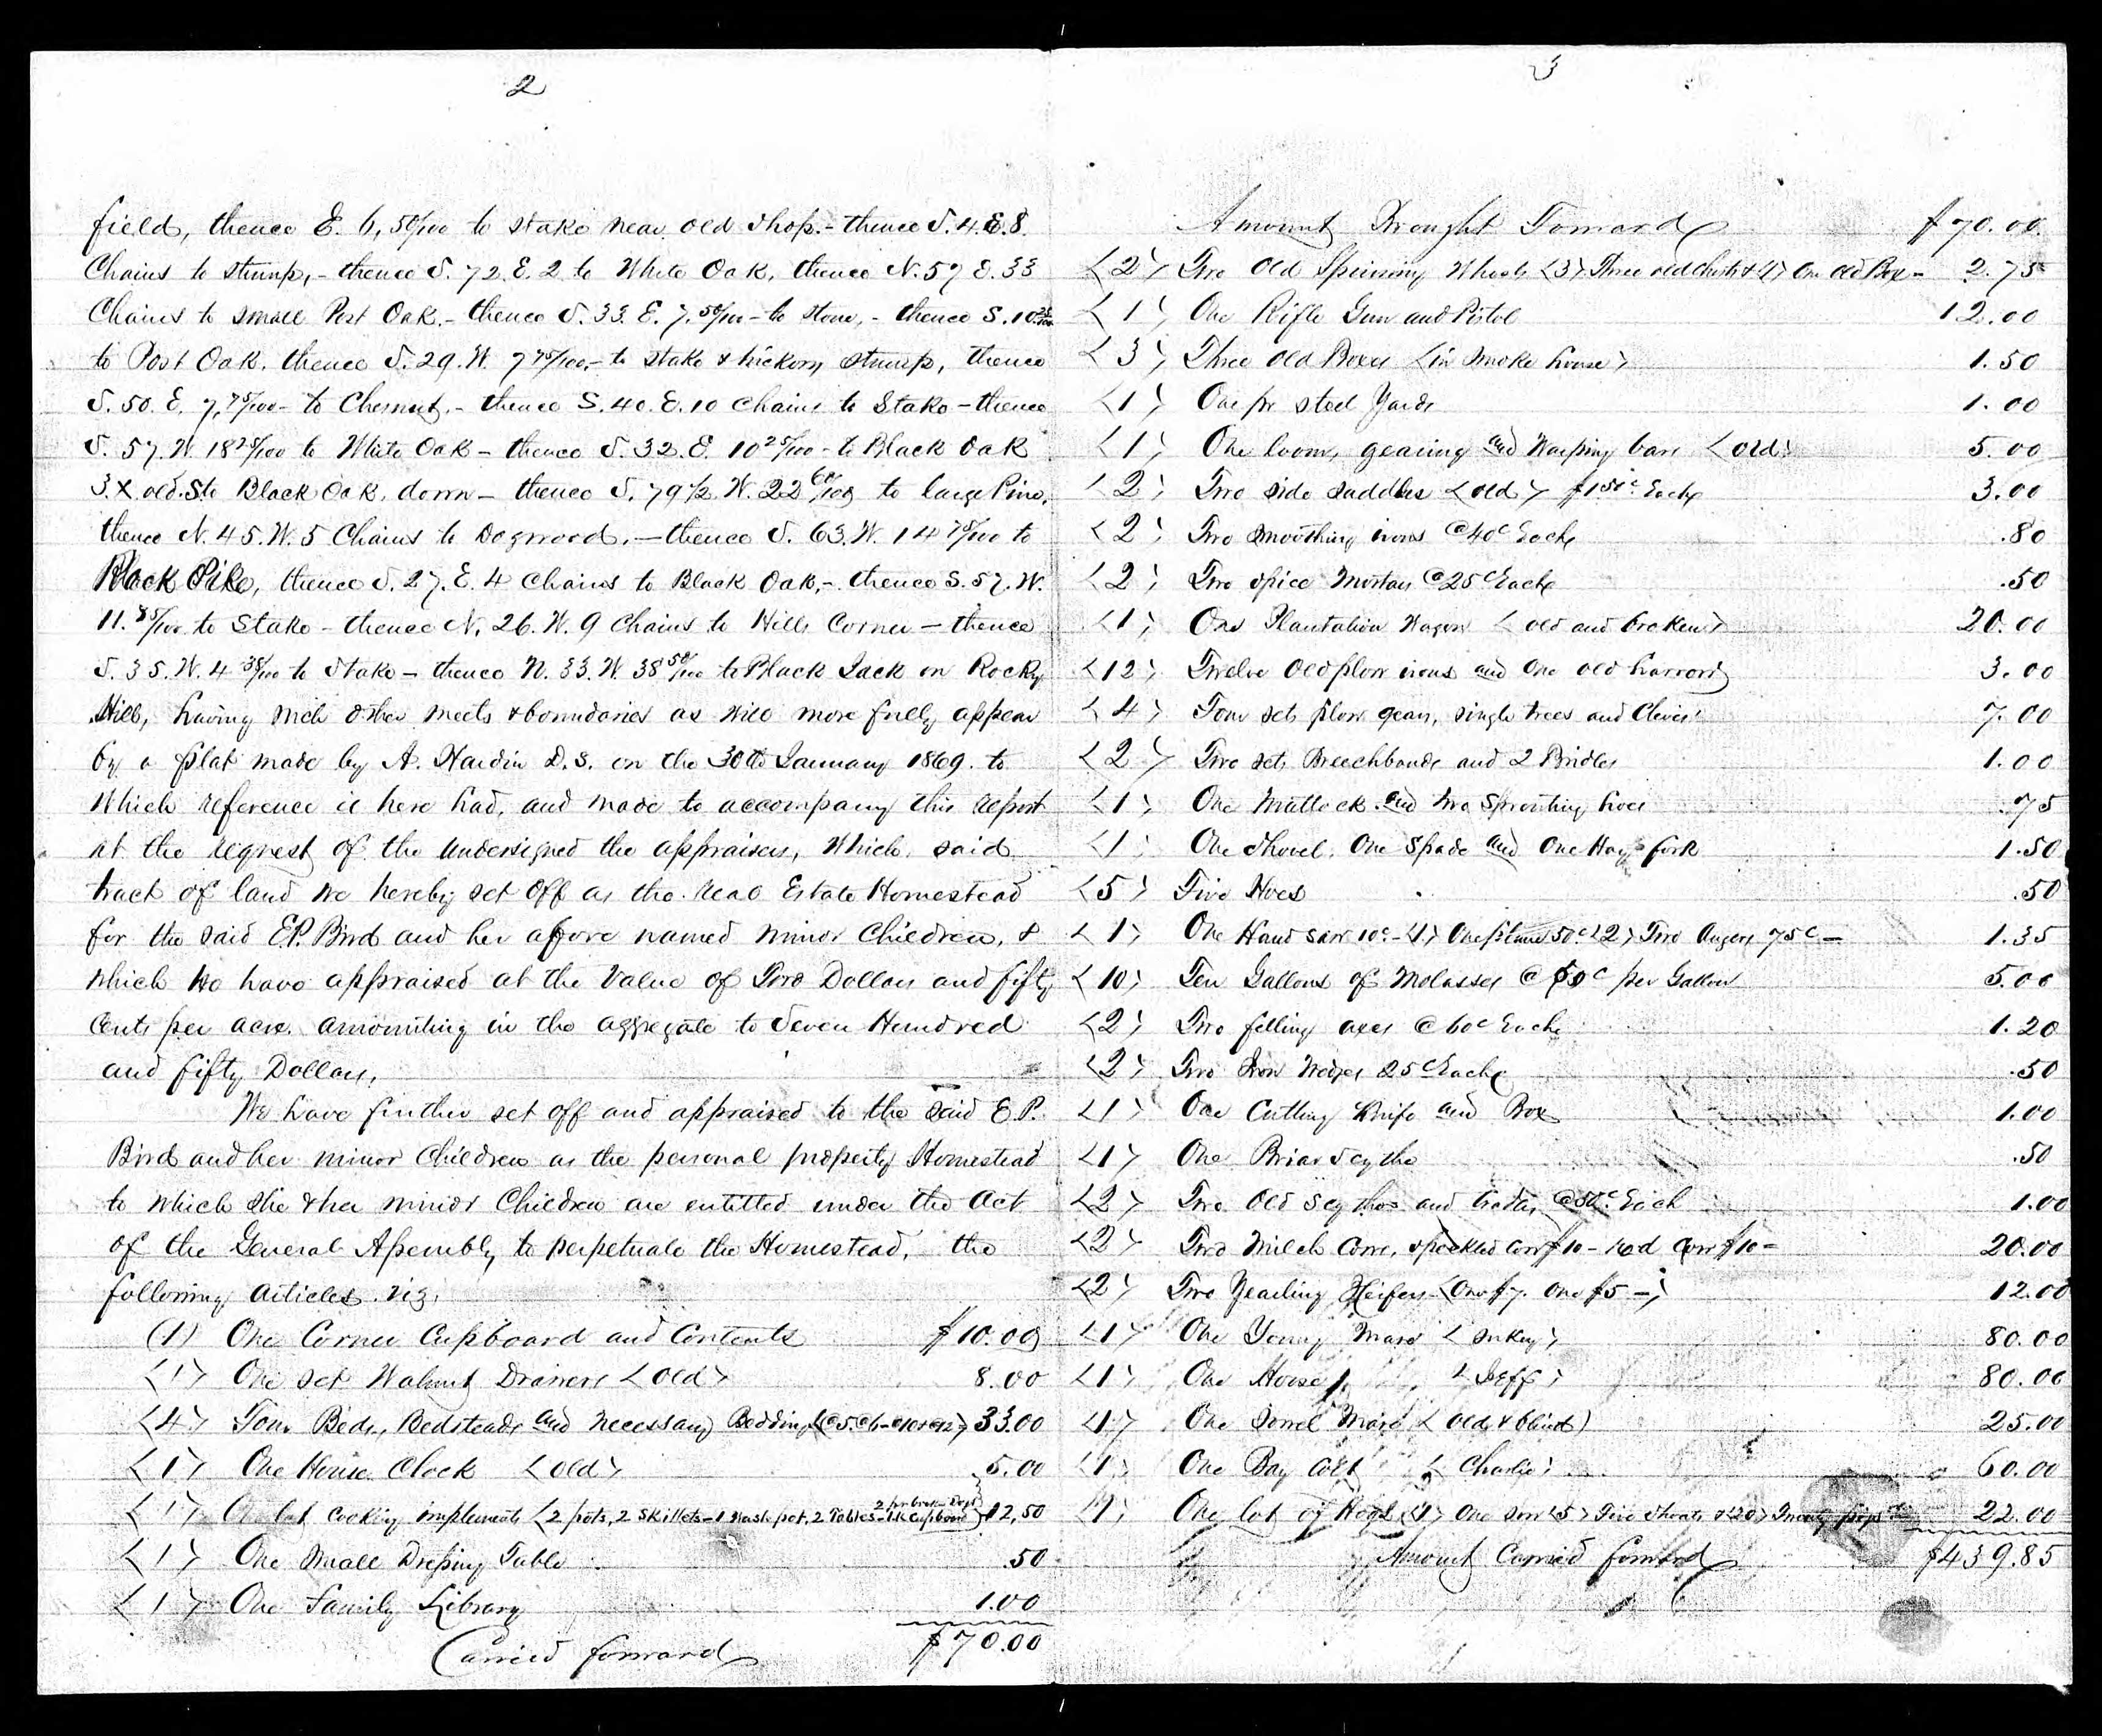 2
field, thence E. 6,50/100 to stake near old shop.- thence S. 4. E. 8.
Chains to stump,- thence S. 72. E. 2 to White Oak, thence N. 57 E. 33
Chains to small Post Oak.- thence S. 33. E. 7.50/100 - to stone,- thence S. 10
to Post Oak. thence S. 29. W. 7 75/100,- to stake & hickory stump, thence
S. 50. E. 7,75/100 - to Chesnut,- thence S. 40. E. 10 Chains to Stake - thence
S. 57. W. 18 25/100 to White Oak - thence S. 32. E. 10 25/100 - to Black Oak
3.X old. Sto Black Oak, down - thence S. 79 1/2. W. 22 60/100 to large Pine,
thence N. 45. W. 5 Chains to Dogwood,- thence S. 63. W. 14 75/100 to
thence S. 27. E. 4 Chains to Black Oak,- thence S. 57. W.
11. 85/100 to Stake - thence N. 26. W. 9 Chains to Hills Corner - thence
S. 35. W. 4 38/100 to Stake - thence N. 33. W. 38 50/100 to Black Jack on Rocky
Hill, having such other meets & boundaries as will more fully appear
by a plat made by A. Hardin D.S. on the 30th January 1869. to
which reference is here had, and made to accompany this report
at the request of the undersigned the appraisers, Which said
tract of land we hereby set off as the Real Estate Homestead
for the said E.P. Bird and her afore named minor Children, &
which we have appraised at the Value of Two Dollars and fifty
Cents per acre. amounting in the aggregate to Seven Hundred
and fifty Dollars,
We have further set off and appraised to the said E.P.
Bird and her minor Children as the personal property Homestead
to which she & her minor Children are entitled under the Act
of the General Assembly to perpetuate the Homestead, the
following Articles. viz,
(1) One Corner Cupboard and Contents $10.00
<1> One set Walnut Drawers <old> 8.00
<4> Four Beds, Bedsteads and necessary Bedding <@5.@6-@10&@12> 33.00
<1> One House Clock <old> 5.00
<1> One lot Cooking implements <2 pots, 2 Skillets - 1 Wash pot, 2 Tables - 1 K Cupboard 12,50
<1> One Small Dressing Table .50
<1> One Family Library 1.00
Carried forward $70.00
3
Amount Brought Forward $70.00
<2> Two Old Spinning Wheels <3> Three old Chests & <1> One old Box - 2.75
<1> One Rifle Gun and Pistol 12.00
<3> Three Old Boxes <in Smoke house> 1.50
<1> One pr steel Yards 1.00
<1> One loom, gearing and Warping bars <old> 5.00
<2> Two side saddles <old> $1.50c Each 3.00
<2> Two smoothing irons @40c Each .80
<2> Two spice Mortars @25c Each .50
<1> One Plantation Wagon <old and broken> 20.00
<12> Twelve Old plow irons and One old harrow 3.00
<4> Four sets plow gears, single trees and Clevis 7.00
<2> Two sets Breechbands and 2 Bridles 1.00
<1> One Mattock and two Sprouting hoes .75
<1> One Shovel, One Spade and One Hay fork 1.50
<5> Five Hoes .50
<1> One Hand saw 10c - <1> One plane 50c <2> Two Augers 75c - 1.35
<10> Ten Gallons of Molasses @ 50c per Gallon 5.00
<2> Two felling axes @ 60c Each 1.20
<2> Two Iron Wedges 25c Each .50
<1> One Cutting Knife and Box 1.00
<1> One Briar Scythe .50
<2> Two Old Scythes and Cradles @50c Each 1.00
<2> Two Milch Cows, speckled Cow $10 - red Cow $10 - 20.00
<2> Two Yearling Heifers <One $7. One $5 -> 12.00
<1> One Young Mare 80.00
<1> One Horse <Jeff> 80.00
<1> One Sorrel Mare <old & blind) 25.00
<1> One Bay Colt <Charlie> 60.00
<1> One lot of Hogs <1> One sow <5> Five Shoats & <20> Twenty pigs 22.00
Amount Carried forward $439.85